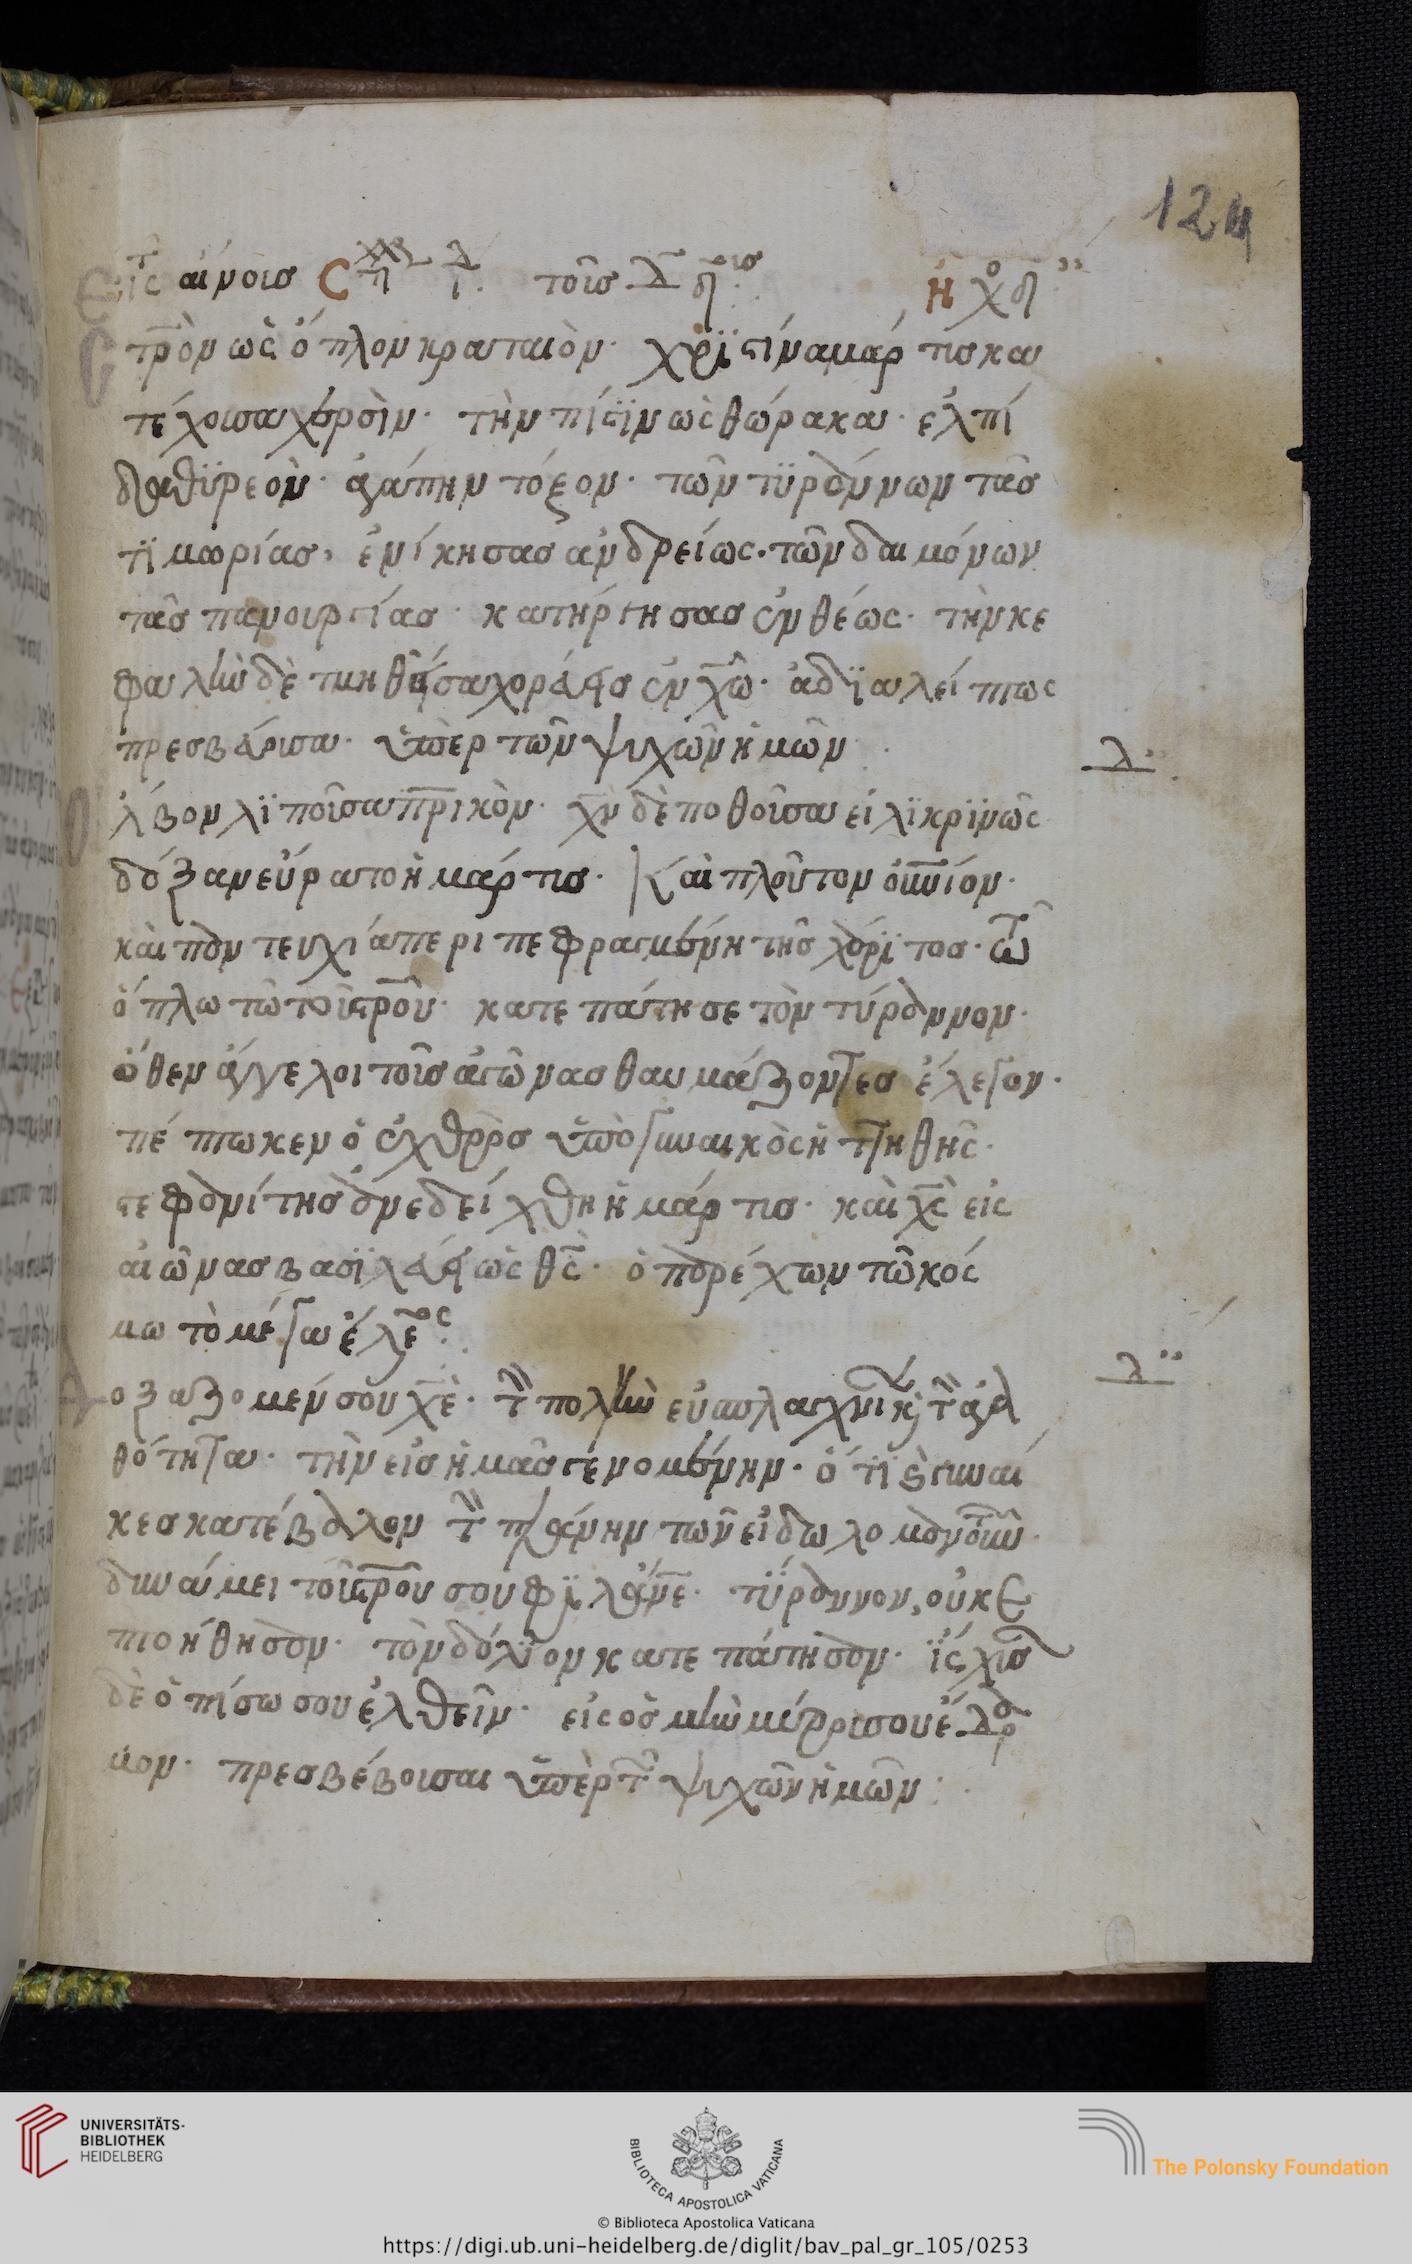 124
Εἰς τ αἴνοις Στιχ τοῖς ἦχος
Στρὸν ὡς ὅπλον κραταιὸν· χριστίνα μάρτις κα
τέχοισα χερσὶν· τὴν πίστϊν ὡς θώρακα· ἐλπί
δα θϋρεὸν· ἀγάπην τόξον· τῶν τϋράννων τᾶς
τϊμωρίας, ἐνίκησας ἀνδρείως· τῶν δαιμόνων
τᾶς πανουργίας· κατήργησας ἐνθέως· τὴν κε
φαλὴν δὲ τμηθῆσα χορεύεις ἐν χω· ἀδϊαλείπτως
πρεσβεύοισα· ὑπὲρ τῶν ψυχῶν ἡμῶν
λ
Ὄλβον λϊποῖσα πρικὸν· χν δὲ ποθοῖσα εἰλϊκρϊνῶς
δόξαν εὕρατο ἡ μάρτις· καὶ πλοῦτον οὐνίον·
καὶ παντευχία περιπεφραγμένη τῆς χάρϊτος· τῶ
ὅπλω τῶ τοῦ στροῦ· κατεπάτησε τὸν τύραννον·
ὅθεν ἄγγελοι τοῖς ἀγῶνας θαυμάζοντες ἔλεγον·
πέπτωκεν ὁ ἐχθρὸς ὑπὸ γυναικὸς ἡττηθῆς·
στεφανίτης ἀνεδείχθη ἡ μάρτις· καὶ χς εἰς
αἰῶνας βασϊλεύει ὡς θς· ὁ παρέχων τῶ κόσ
μω τὸ μέγα ἔλεος
λ
Δοξάζομέν σου χε· τὴν πολλὴν εὐσπλαγχνίαν κ τὴν ἀγα
θότητα· τὴν εἰς ἡμᾶς γενομένην· ὅτϊ κ γυναῖ
κες κατέβαλλον τὴν πλάνην τῶν εἰδωλομανοῦν
δυνάμει τοῦ στροῦ σου φϊλάνε· τϋραννον, οὐκ ε
πτοήθησαν· τὸν δόλϊον κατεπάτησαν· ἴσχισ
δὲ ὀπίσω σου ἐλθεῖν· εἰς ὀσμὴν μύρου σου ἔδρα
μον· πρεσβέβοισαι ὑπὲρ τ ψυχῶν ἡμῶν
UNIVERSITÄTS-
BIBLIOTHEK
HEIDELBERG
BIBLIOTECA APOSTOLICA VATICANA
The Polonsky Foundation
© Biblioteca Apostolica Vaticana
https://digi.ub.uni-heidelberg.de/diglit/bav_pal_gr_105/0253